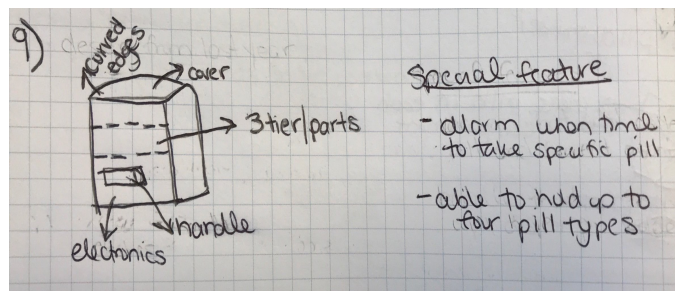 9)
curved
edges
cover
3 tier/parts
handle
electronics
Special feature
- alarm when time
to take specific pill
- able to hold up to
four pill types